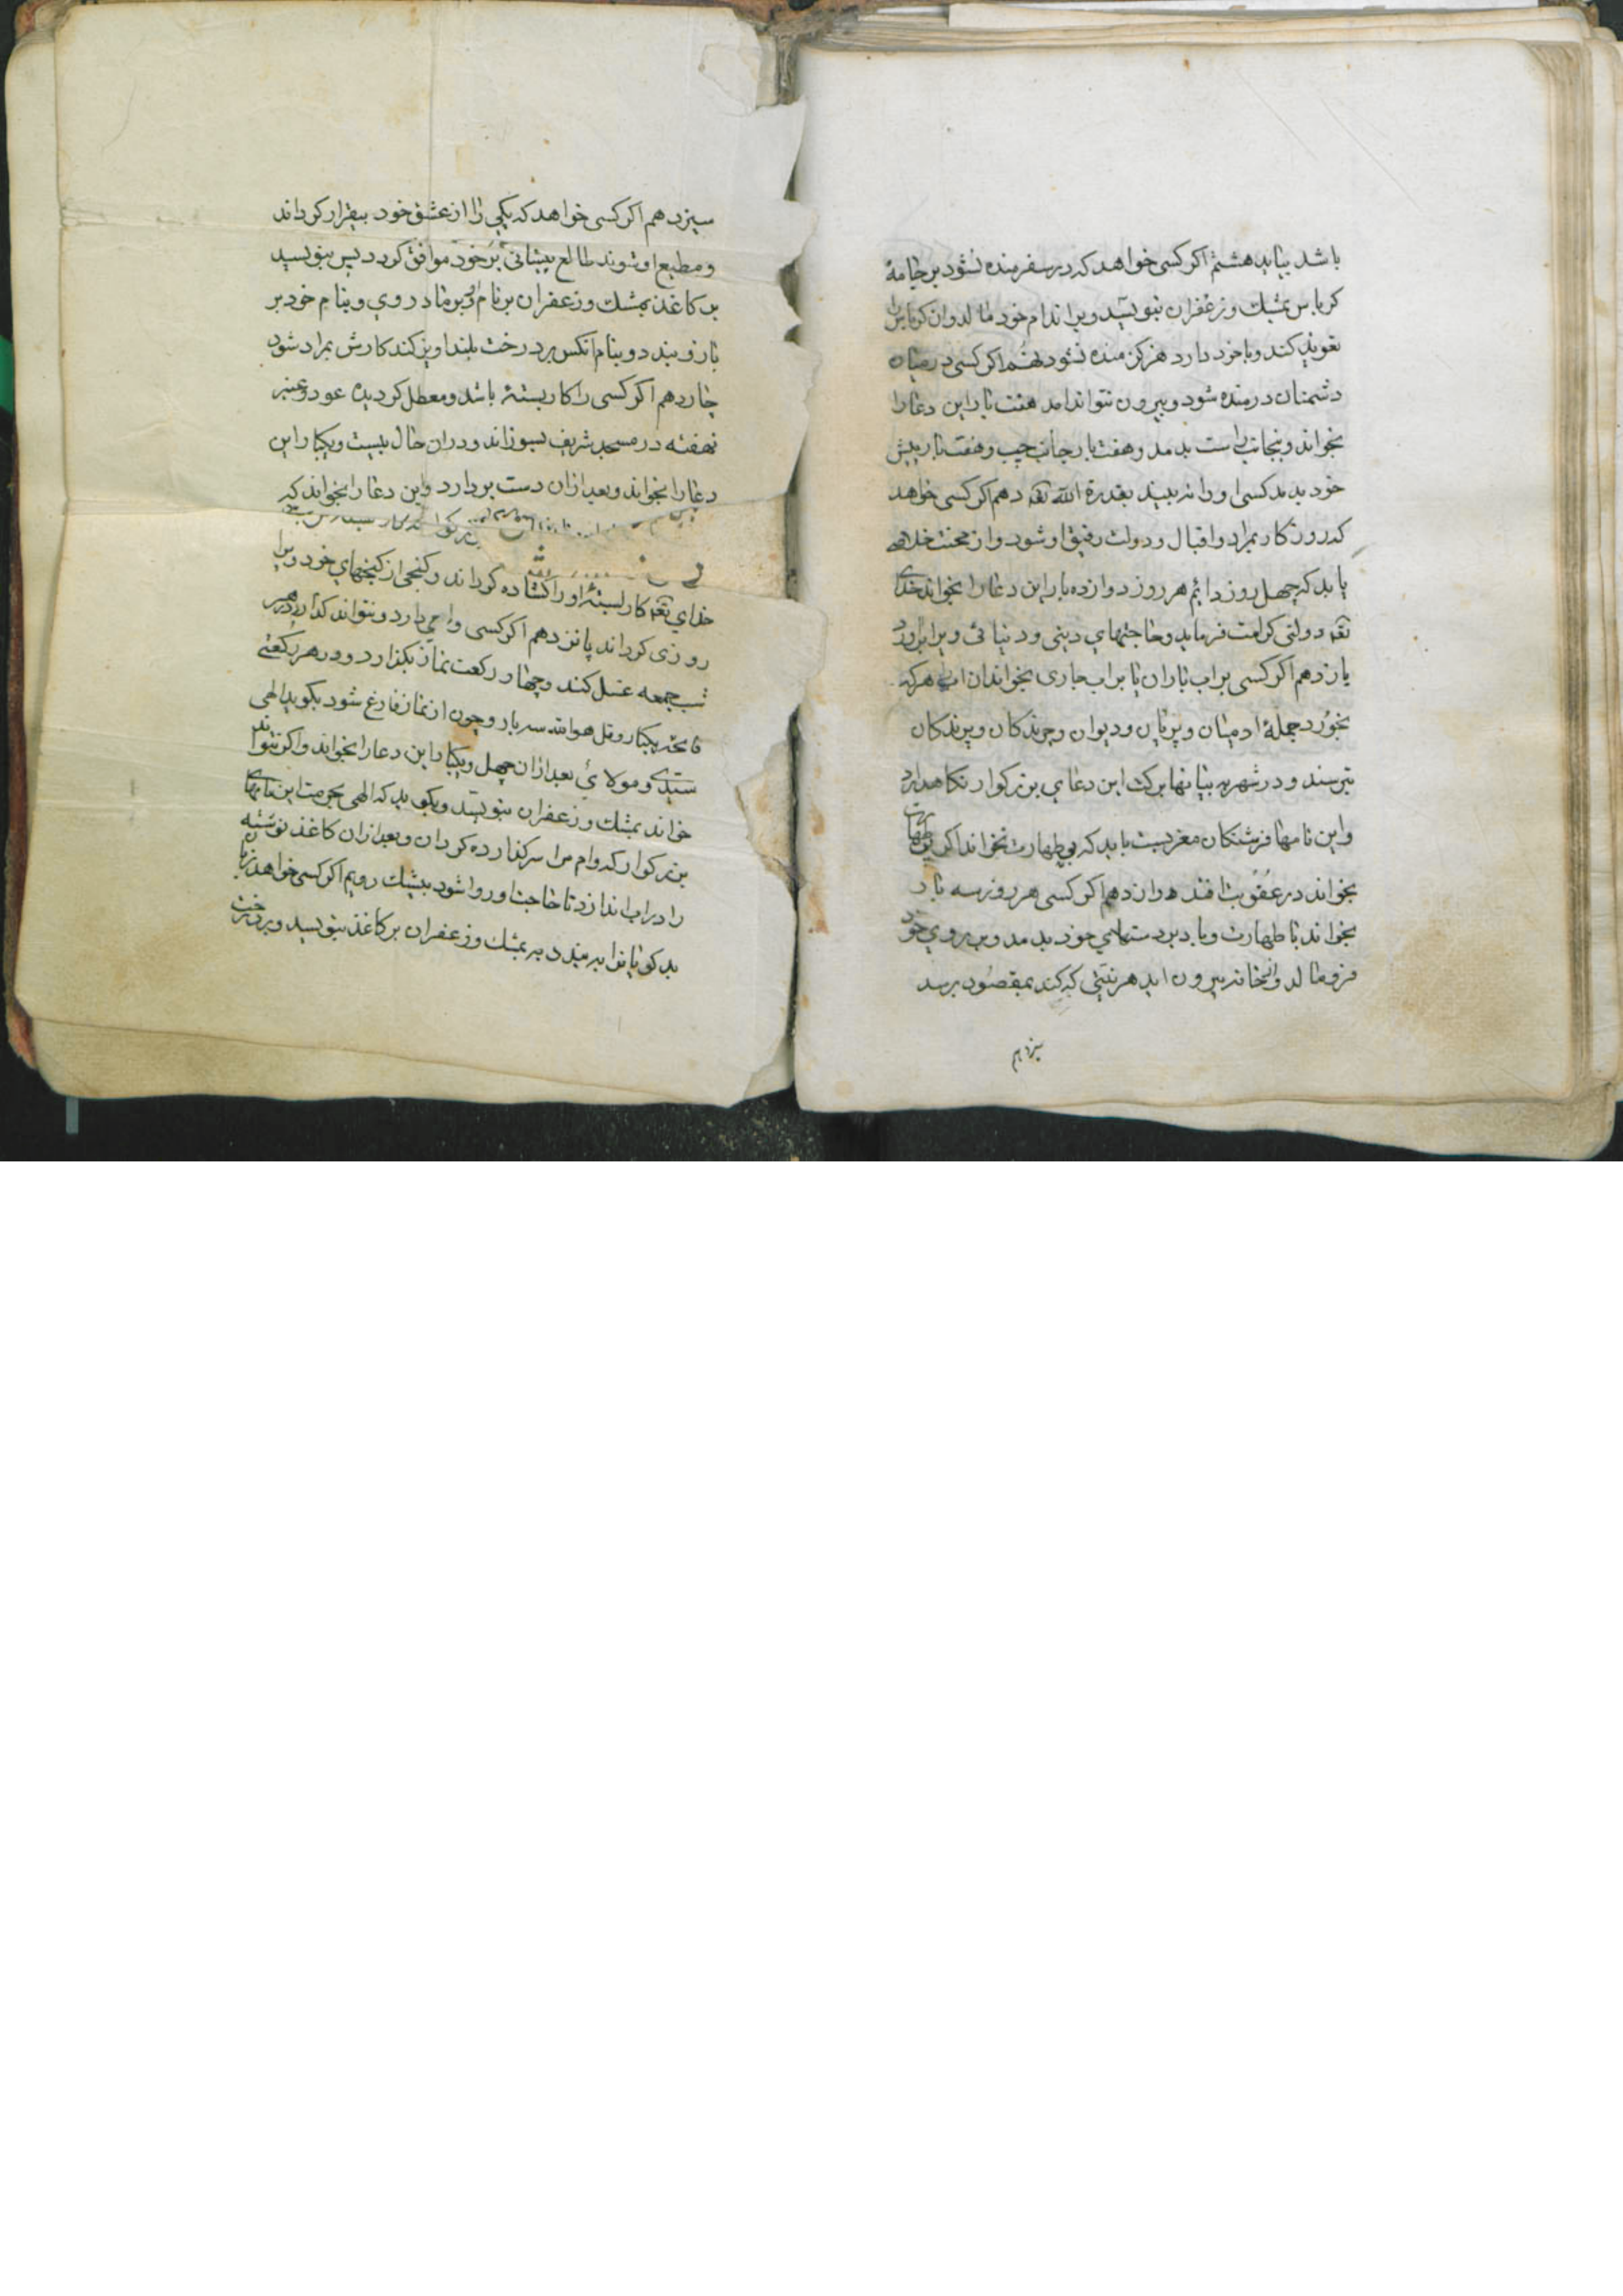 باشد بیاید هشتم اکر کسی خواهد که در سفر منده نشود بر جامهٔ
کرباس بمشك و زعفران بنویسد و بر اندام خود مالد و ان کرباس را
تعویذ کند و با خود دارد هرکز منده نشود نهم اکر کسی در میان
دشمنان درمنده شود و بیرون نتواند امد هفت بار این دعا را
بخواند و بجانب راست بدمد و هفت بار بجانب چپ و هفت بار پیش
خود بدمد کسی او را نه بیند بقدرة الله تعه دهم اکر کسی خواهد
که روز کار بمراد و اقبال و دولت رفیق او شود و از محنت خلاصی
یابد که چهل روز دایم هر روز دوازده بار این دعا را بخواند خدای
تعه دولتی کرامت فرماید و حاجتهای دینی و دنیائی ویرا براورد
یازدهم اکر کسی بر اب باران یا بر اب جاری بخواند ان اب هر که
بخورد جملهٔ ادمیان و پریان و دیوان و چرندکان و پرندکان
بترسند و در شهر بیابانها برکت این دعای بزرکوار نکاهدارد
و این نامها فرشتکان مغربست باید که بی طهارت نخواند اکر بی طهارت
بخواند در عقوبت افتد دوازدهم اکر کسی هر روز سه بار
بخواند با طهارت و باد بر دستهای خود بدمد و بر روی خود
فرو مالد و از خانه بیرون اید هر نیتی که کند بمقصود برسد
سیزدهم
سیزدهم اکر کسی خواهد که یکی را از عشق خود بیقرار کرداند
و مطیع او شوند طالع پیشانی بر خود موافق کردد پس بنویسید
بر کاغذ بمشك و زعفران بر نام او و بر مادر وی و بنام خود بر
بازو بندد و بنام انکس بر درخت بلند اویز کند کارش بمراد شود
چاردهم اکر کسی را کار بستهٔ باشد و معطل کردیده عود و عنبر
نهفته در مسجد شریف بسوزاند و دران حال بیست و یکبار این
دعا را بخواند و بعد ازان دست بردارد و این دعا را بخواند که
خدای تعه کار بستهٔ او را کشاده کرداند و کنجی از کنجهای خود ویرا
روزی کرداند پانزدهم اکر کسی وامی دارد و نتواند کذاردن در
شب جمعه غسل کند و چهار رکعت نماز بکذارد و در هر رکعتی
فاتحه یکبار و قل هو الله سه بار و چون از نماز فارغ شود بکوید الهی
سیدی و مولای بعد ازان چهل و یکبار این دعا را بخواند و اکر نتواند
خواند بمشك و زعفران بنویسد و بکوید که الهی بحرمت این نامهای
بزرکوار که وام مرا سر کذارده کردان و بعد ازان کاغذ نوشته
را در اب اندازد تا حاجت او روا شود بیشك رویم اکر کسی خواهد زبان
بد کویانرا به بندد به بمشك و زعفران بر کاغذ بنویسید و بر درخت